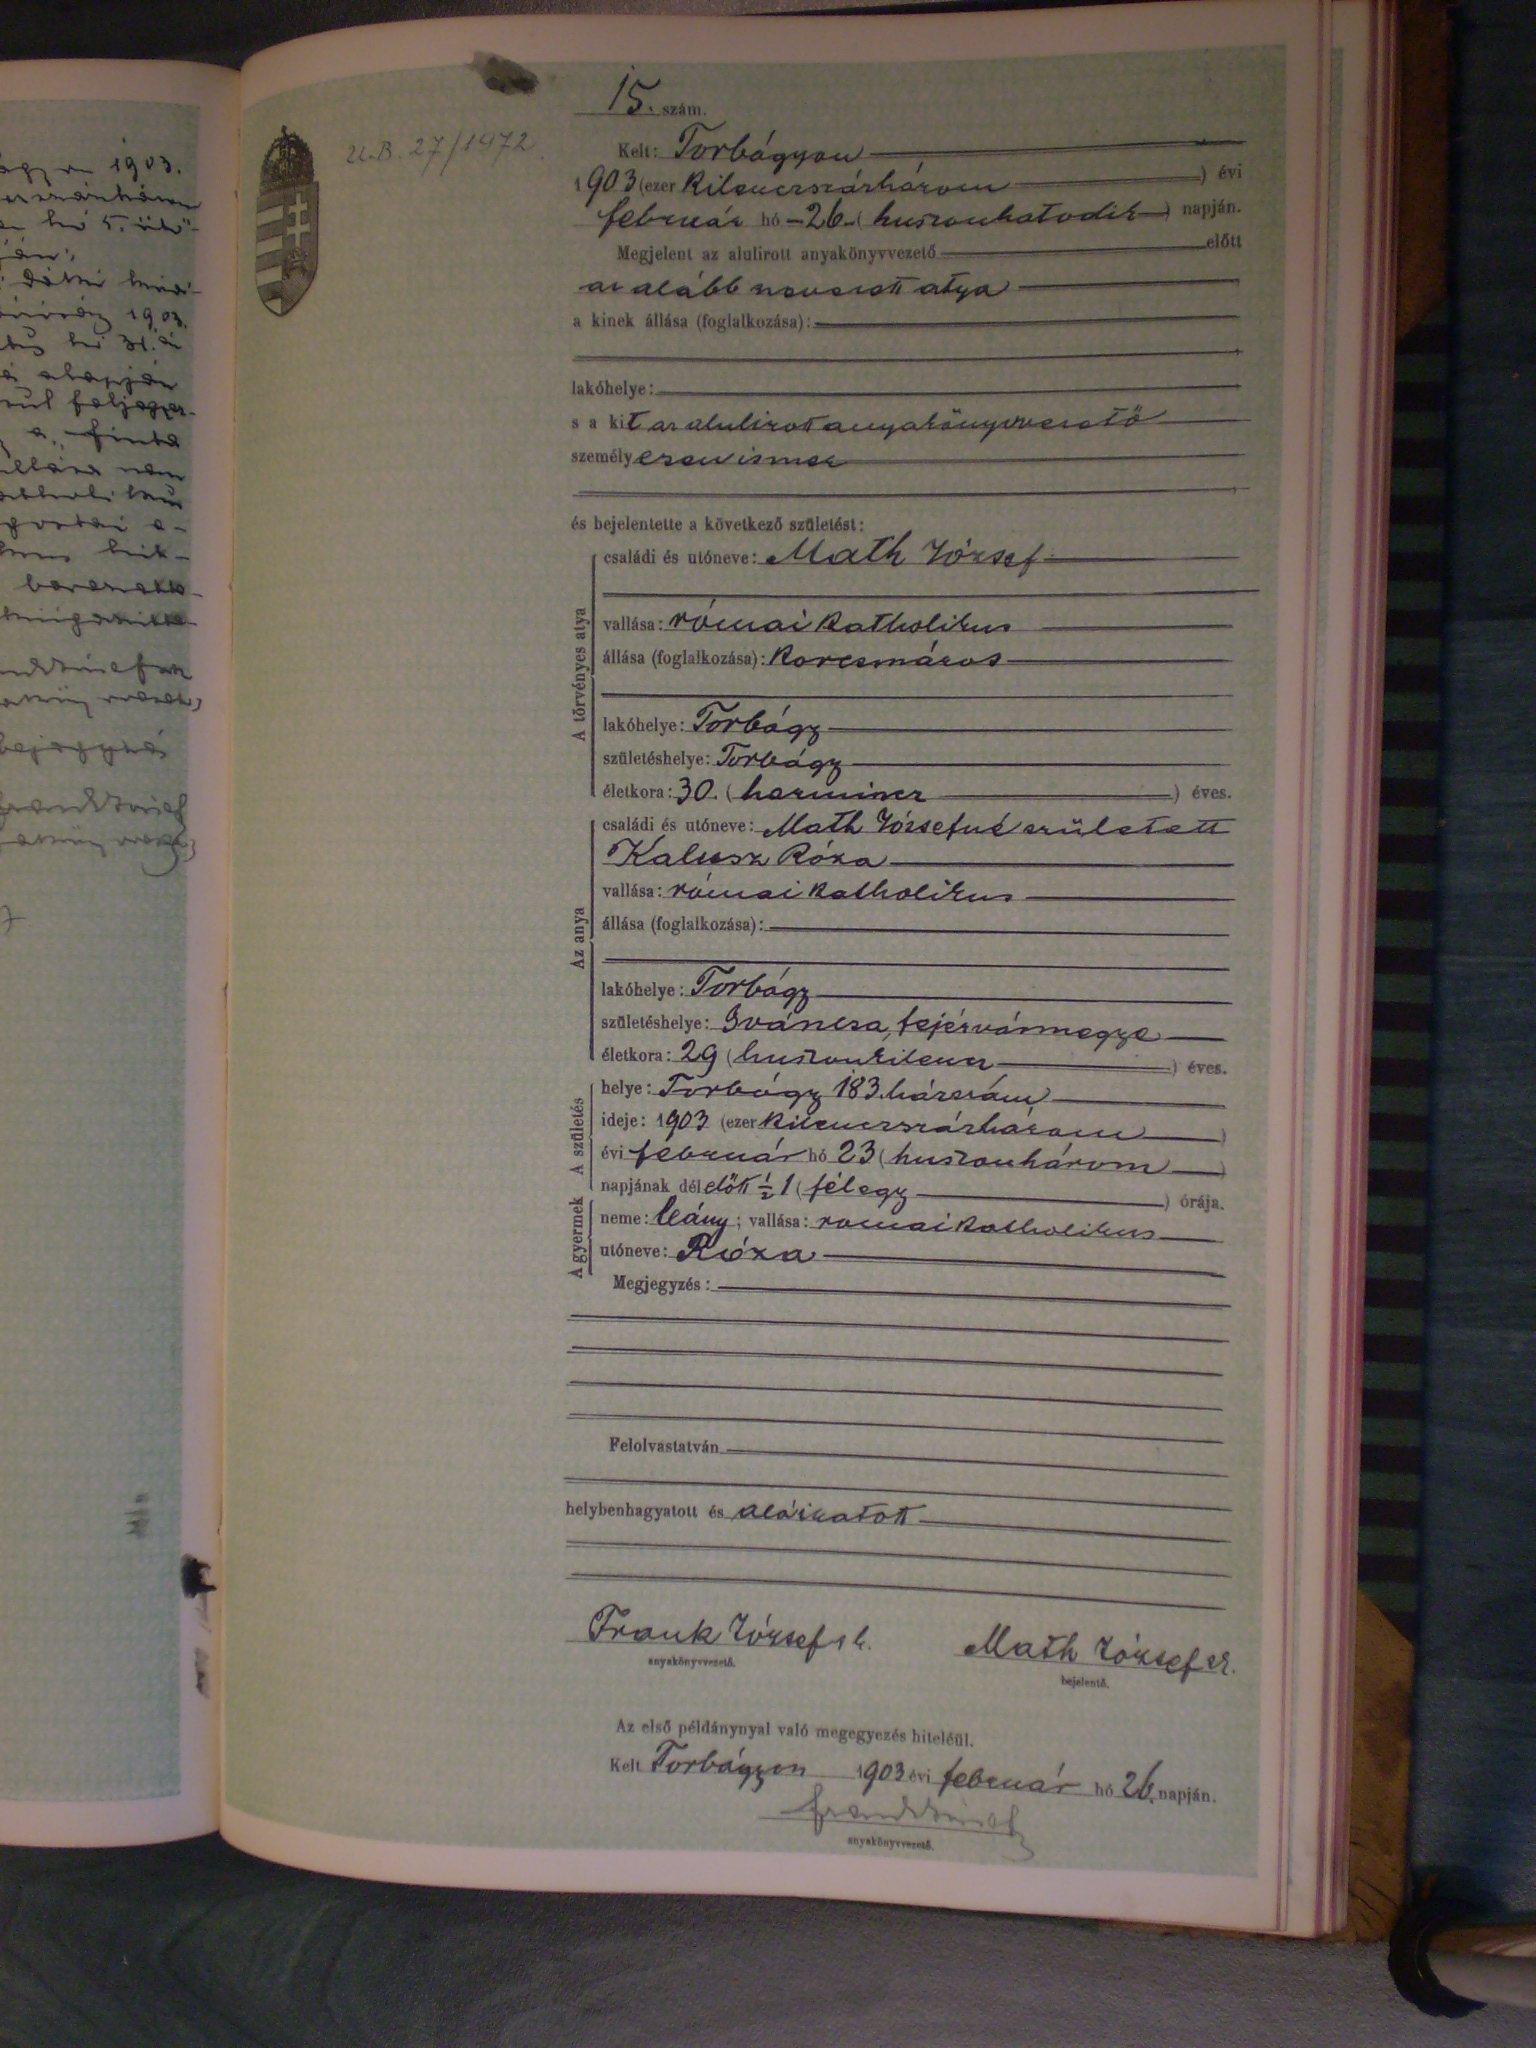 15. szám.
U.B. 27/1972.
Kelt: Torbágyon
1903 (ezer kilenczszázhárom) évi
február hó 26. (huszonhatodik) napján.
Megjelent az alulirott anyakönyvvezető előtt
az alább nevezett atya
a kinek állása (foglalkozása):
lakóhelye:
s a kit az alulirott anyakönyvvezető
személyesen ismer
és bejelentette a következő születést:
A törvényes atya
családi és utóneve: Math József
vallása: római katholikus
állása (foglalkozása): korcsmáros
lakóhelye: Torbágy
születéshelye: Torbágy
életkora: 30. (harmincz) éves.
Az anya
családi és utóneve: Math Józsefné született
Kalusz Róza
vallása: római katholikus
állása (foglalkozása):
lakóhelye: Torbágy
születéshelye: Iváncsa, fejérvármegye
életkora: 29 (huszonkilencz) éves.
A születés
helye: Torbágy 183. házszám
ideje: 1903 (ezer kilenczszázhárom)
évi február hó 23 (huszonhárom)
napjának délelőtt ½1 (fél egy) órája.
A gyermek
neme: leány; vallása: romai katholikus
utóneve: Róza
Megjegyzés:
Felolvastatván
helybenhagyatott és aláiratott
Frank József s k. Math József sk.
anyakönyvvezető. bejelentő.
Az első példánynyal való megegyezés hiteléül.
Kelt Torbágyon 1903 évi február hó 26. napján.
Frank József
anyakönyvvezető.